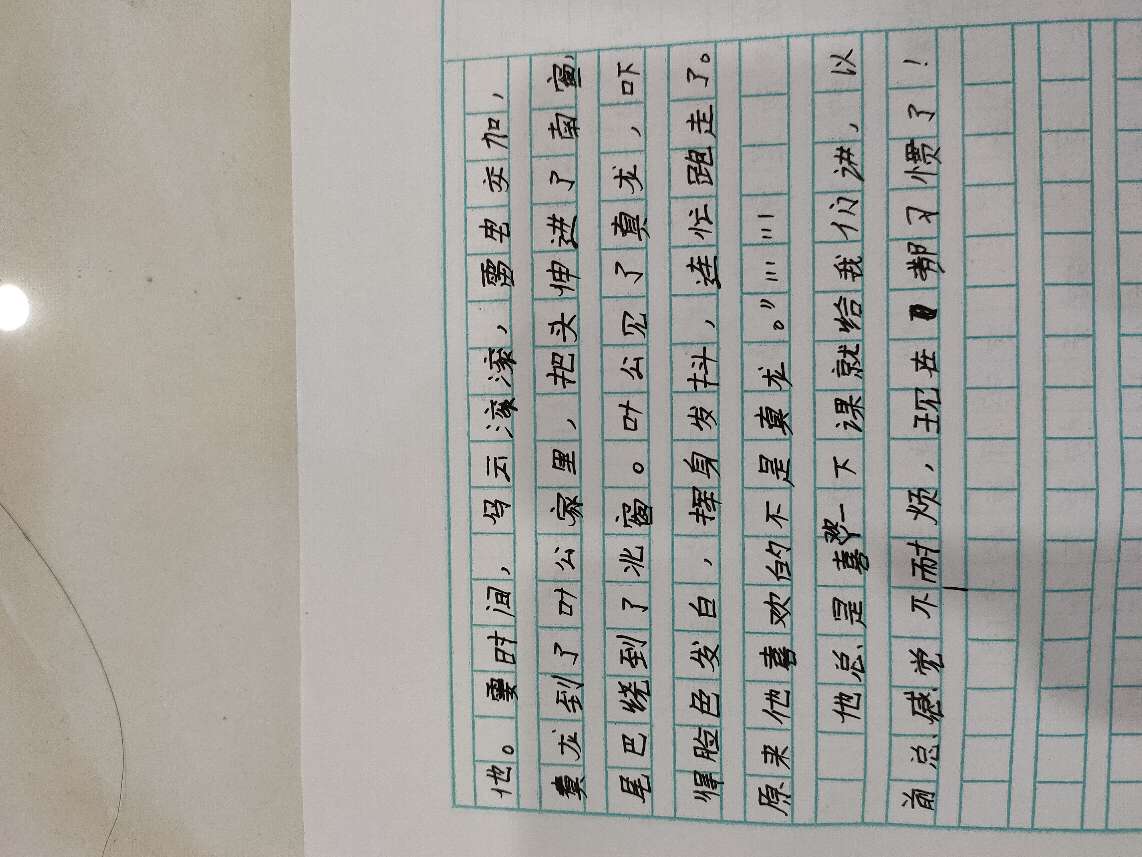 他。霎时间，乌云滚滚，雷电交加，
真龙到了叶公家里，把头伸进了南窗，
尾巴绕到了北窗。叶公见了真龙，吓
得脸色发白，挥身发抖，连忙跑走了。
原来他喜欢的不是真龙。”……
他总是喜欢一下课就给我们讲，以
前总感觉不耐烦，现在都习惯了！